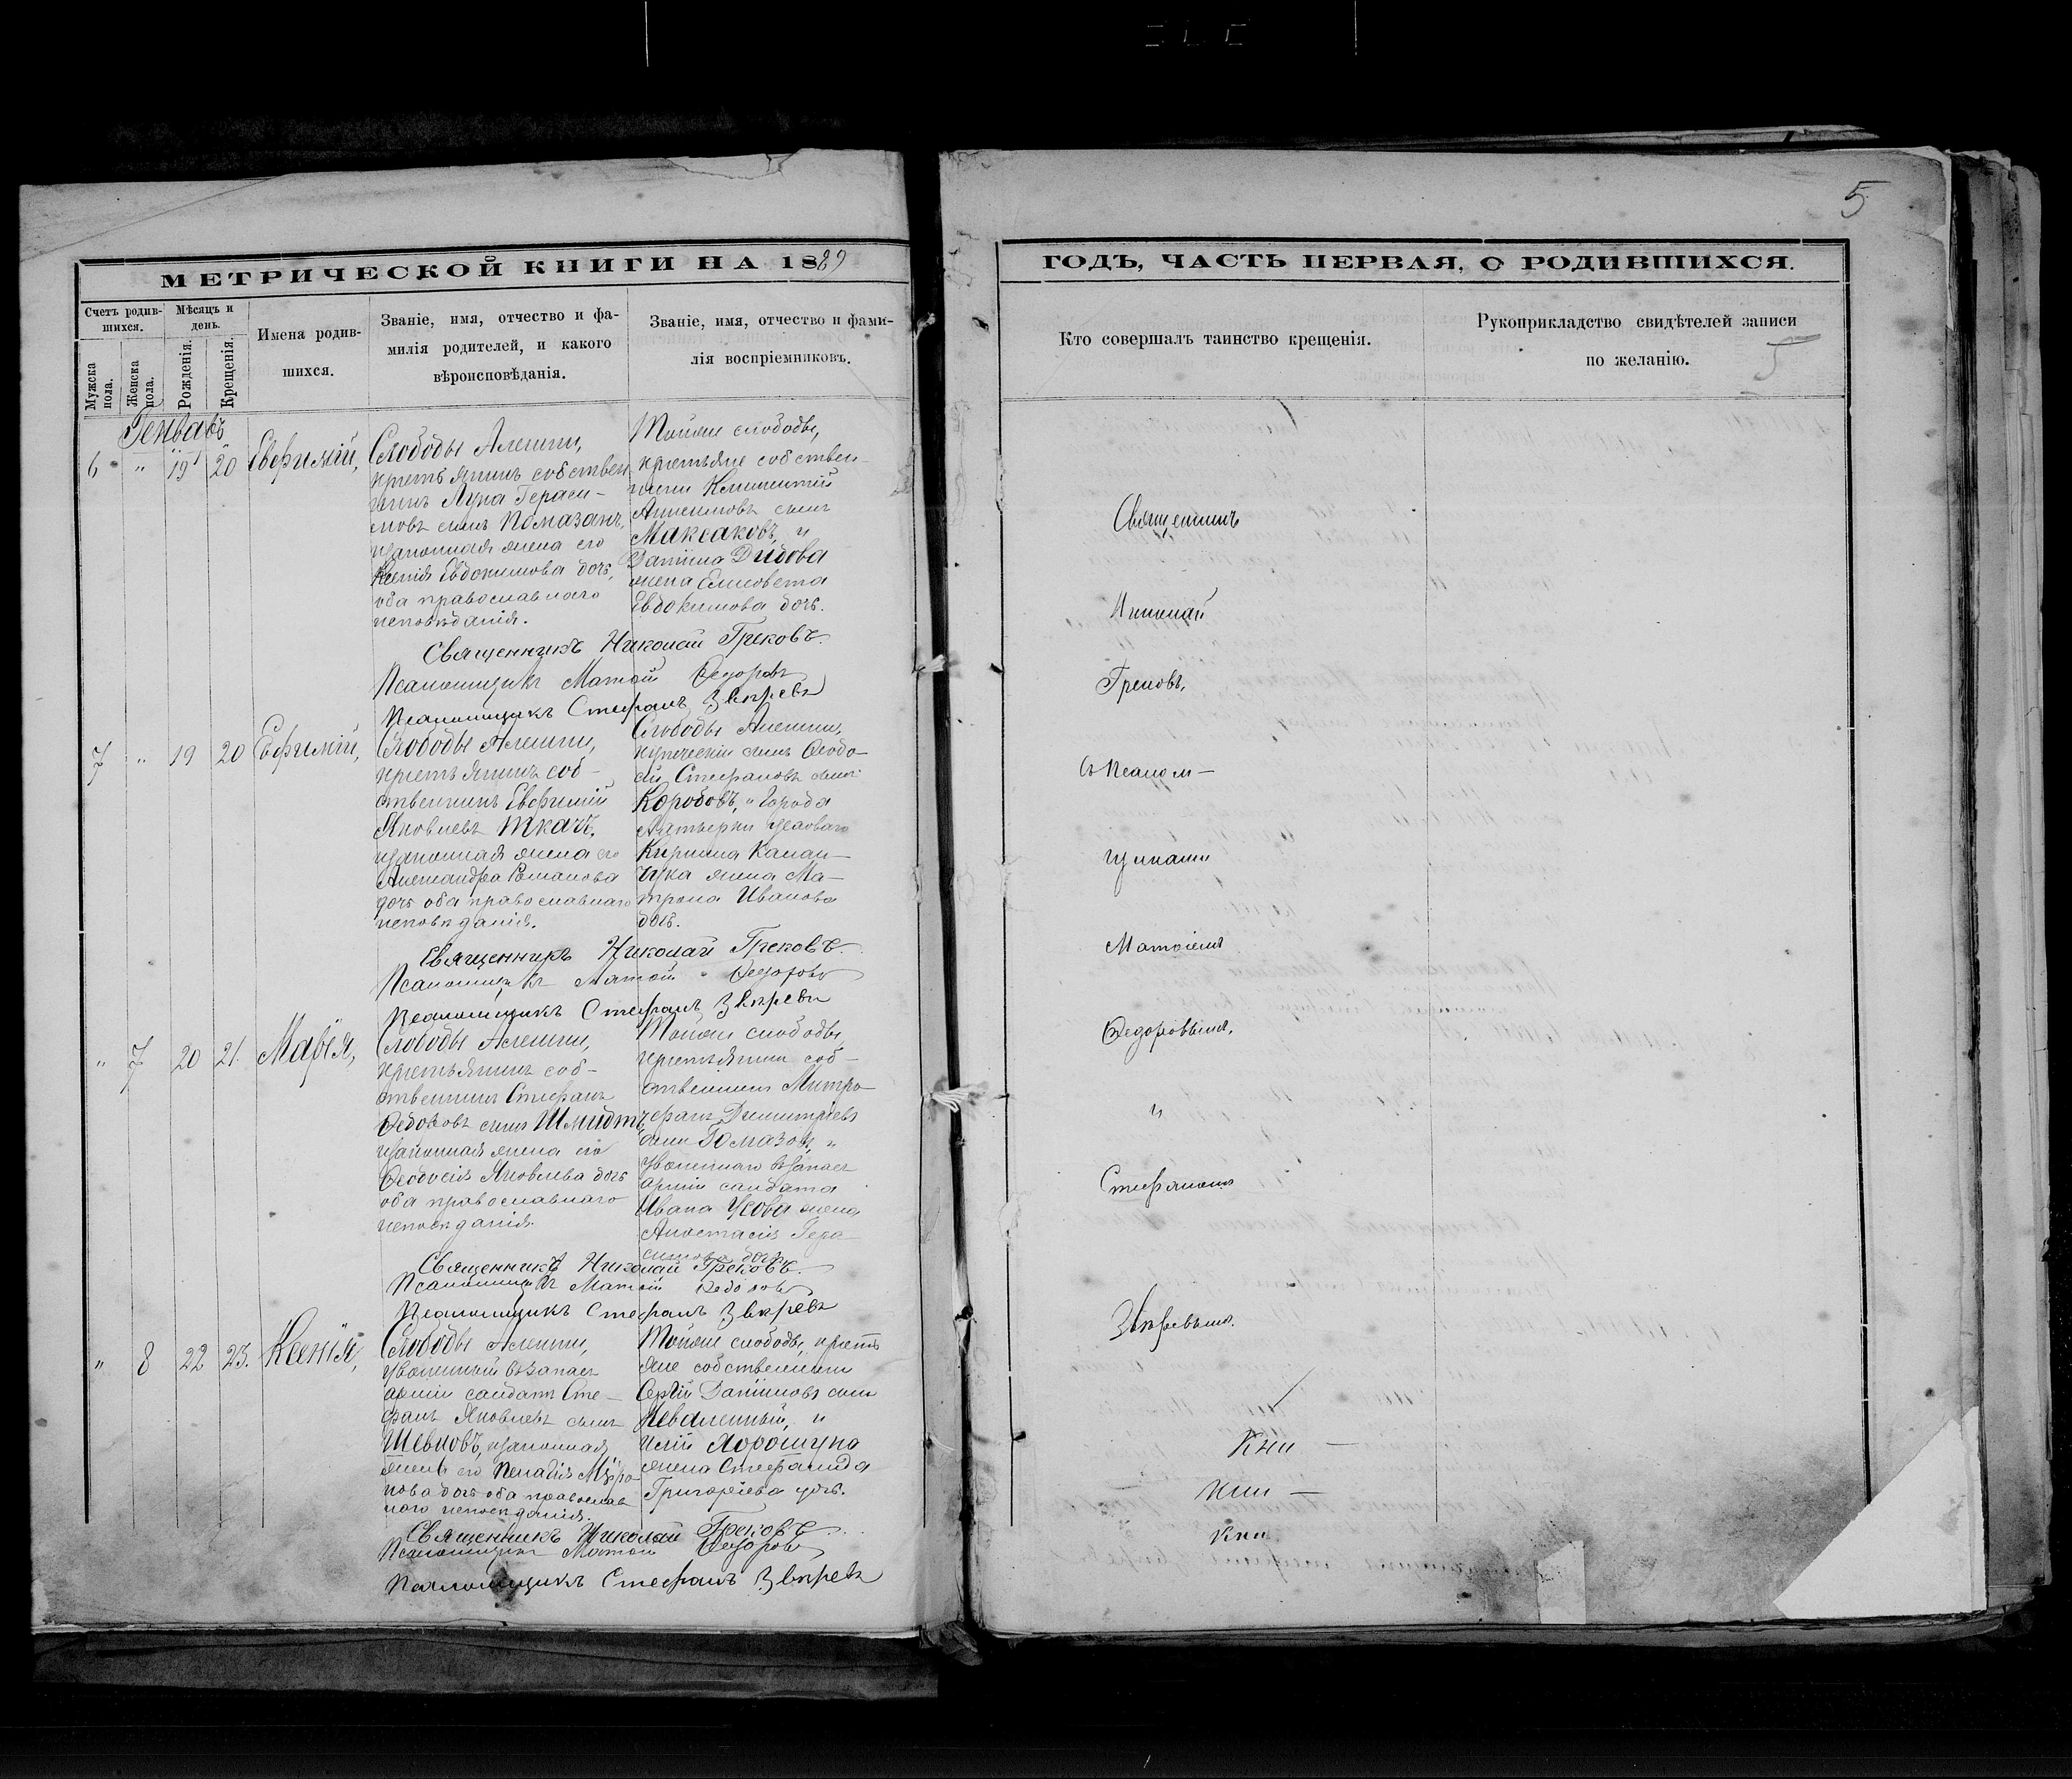 5
МЕТРИЧЕСКОЙ КНИГИ НА 1889
ГОДЪ, ЧАСТЬ ПЕРВАЯ, О РОДИВШИХСЯ.
Счетъ родив-
шихся.
Мѣсяцъ и
день.
Мужска
пола.
Женска
пола.
Рожденія.
Крещенія.
Имена родив-
шихся.
Званіе, имя, отчество и фа-
милія родителей, и какого
вѣроисповѣданія.
Званіе, имя, отчество и фами-
лія воспріемниковъ.
Кто совершалъ таинство крещенія.
Рукоприкладство свидѣтелей записи
по желанію.
5
Генварь
6 " 19 20 Евфимій,
Слободы Алешки,
крестьянинъ собствен
никъ Лука Гераси-
мовъ сынъ Помазанъ,
законная жена его
Ксенія Евдокимова дочь,
оба православнаго
исповѣданія.
Тойже слободы,
крестьяне собствен-
ники Климентій
сынъ
Максаковъ, и
Даніила Дидова
жена Елисовета
Евдокимова дочь.
Священникъ Николай Грековъ.
Псаломщикъ Матѳій Ѳедоровъ
Псаломщикъ Стефанъ Звѣревъ
7 " 19 20 Евфимій,
Слободы Алешки,
крестьянинъ соб-
ственникъ Евфимій
Яковлевъ Ткачъ,
законная жена его
Александра Романова
дочь оба православнаго
исповѣданія.
Слободы Алешки,
купеческій сынъ Ѳеодо-
сій Стефановъ сынъ
Коробовъ, и города
Кирилла Калан-
чука жена Ма-
трона Иванова
дочь.
Священникъ Николай Грековъ.
Псаломщикъ Матѳій Ѳедоровъ
Псаломщикъ Стефанъ Звѣревъ
" 7 20 21. Марія,
Слободы Алешки,
крестьянинъ соб-
ственникъ Стефанъ
Ѳедоровъ сынъ Шмидтъ,
законная жена его
Ѳеодосія Яковлева дочь
оба православнаго
исповѣданія.
Тойже слободы,
крестьянинъ соб-
ственникъ Митро-
фанъ Димитріевъ
сынъ Помазовъ, и
уволеннаго въ запасъ
арміи солдата
Ивана Усова жена
Анастасія Гера
симова дочь.
Священникъ Николай Грековъ.
Псаломщикъ Матѳій Ѳедоровъ
Псаломщикъ Стефанъ Звѣревъ
" 8 22 23. Ксенія,
Слободы Алешки,
уволенный въ запасъ
арміи солдатъ Сте-
фанъ Яковлевъ сынъ
Шевцовъ, законная
жена его Пелагія Миро-
нова дочь оба православ
наго исповѣданія.
Тойже слободы, кресть
яне собственники
Сергій Даніиловъ сынъ
Неваленный, и
Хорошуна
жена Стефанида
Григоріева дочь.
Священникъ Николай Грековъ
Псаломщикъ Матѳій Ѳедоровъ
Псаломщикъ Стефанъ Звѣревъ
Священникъ
Николай
Грековъ,
съ псалом-
щиками
Матѳіемъ
Ѳедоровымъ,
и
Стефаномъ
Звѣревымъ.